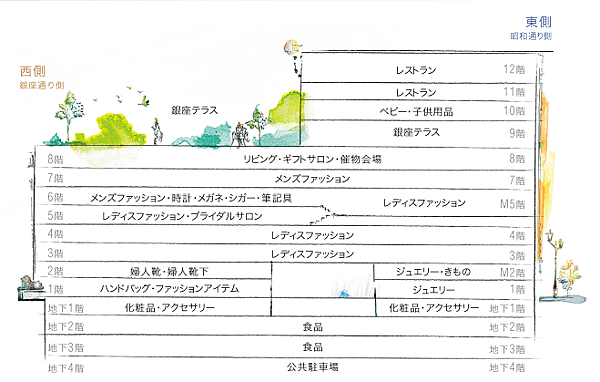 東側
昭和通り側
西側
銀座通り側
レストラン 12階
レストラン 11階
銀座テラス
ベビー・子供用品 10階
銀座テラス 9階
8階 リビング・ギフトサロン・催物会場 8階
7階 メンズファッション 7階
6階 メンズファッション・時計・メガネ・シガー・筆記具
レディスファッション M5階
5階 レディスファッション・ブライダルサロン
4階 レディスファッション 4階
3階 レディスファッション 3階
2階 婦人靴・婦人靴下 ジュエリー・きもの M2階
1階 ハンドバッグ・ファッションアイテム ジュエリー 1階
地下1階 化粧品・アクセサリー 化粧品・アクセサリー 地下1階
地下2階 食品 地下2階
地下3階 食品 地下3階
地下4階 公共駐車場 地下4階